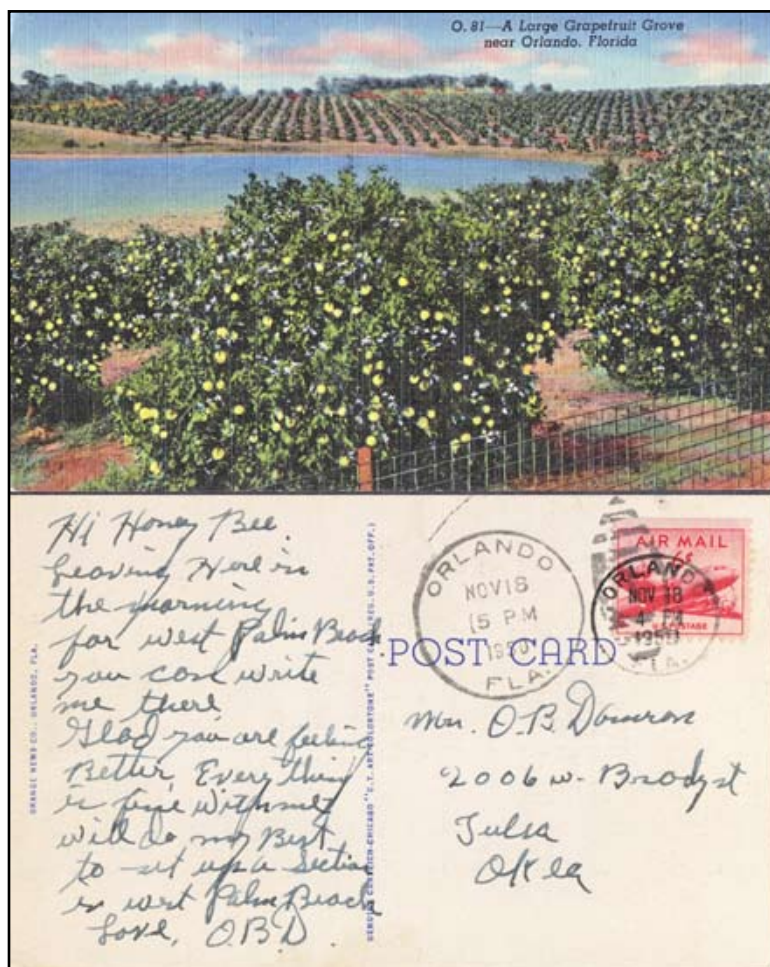 O. 81—A Large Grapefruit Grove
near Orlando, Florida
Hi Honey Bee.
Leaving Here in
the morning
for west Palm Beach
you can write
me there
Glad you are feeling
Better. Every thing
is fine with me
will do my Best
to set up a section
in west Palm Beach
Love, O.B.D
ORANGE NEWS CO., ORLANDO, FLA.
GENUINE CURTEICH-CHICAGO "C.T. ART-COLORTONE" POST CARD (REG. U.S. PAT. OFF.)
POST CARD
ORLANDO
NOV 18
5 PM
1950
FLA.
AIR MAIL
6¢
U.S. POSTAGE
ORLANDO
NOV 18
4 PM
1950
FLA.
Mrs. O.B. Damron
2006 w-
Tulsa
Okla